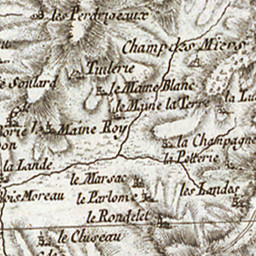 les Perdrigeaux
Champ des Miers
Tuilerie
le Maine Blanc
Soulard
le Maine la Terre
le Maine Roy
la Champagne
la Potterie
la Lande
le Marsac
les Landes
Bois Moreau
le Parlome
le Rondelet
le Cluseau